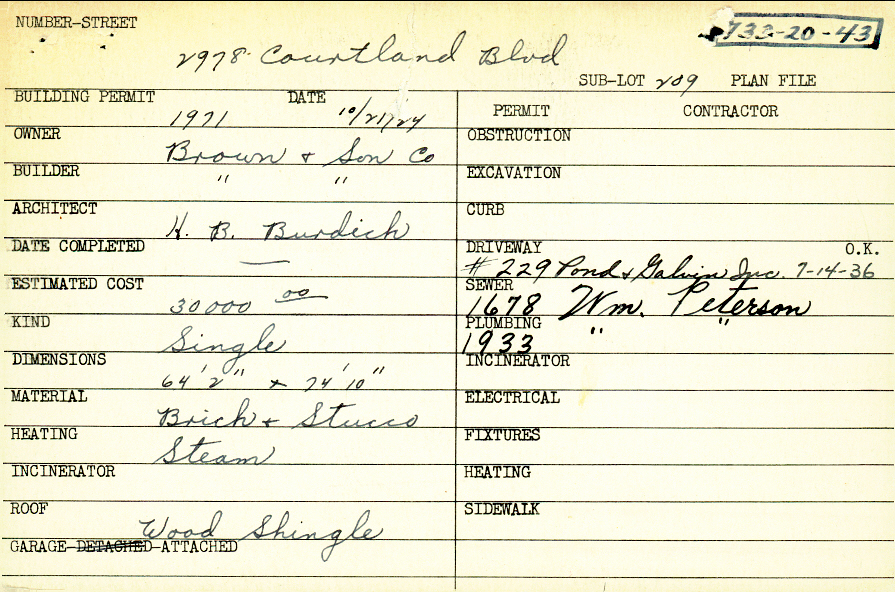 NUMBER-STREET
733-20-43
2978 Courtland Blvd
SUB-LOT 209 PLAN FILE
BUILDING PERMIT 1971 DATE 10/21/24
PERMIT CONTRACTOR
OWNER Brown & Son Co
OBSTRUCTION
BUILDER " "
EXCAVATION
ARCHITECT H. B. Burdich
CURB
DATE COMPLETED —
DRIVEWAY O.K.
# 229 Pond & Galvin Inc. 7-14-36
ESTIMATED COST 30000 00
SEWER
1678 Wm. Peterson
KIND Single
PLUMBING
1933 " "
DIMENSIONS 64' 2" x 74' 10"
INCINERATOR
MATERIAL Brich & Stucco
ELECTRICAL
HEATING Steam
FIXTURES
INCINERATOR
HEATING
ROOF Wood Shingle
SIDEWALK
GARAGE-DETACHED-ATTACHED